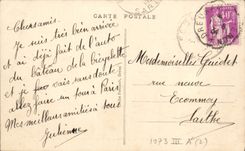 CARTE POSTALE
Chers amis.
Je suis très bien arrivée
et ai déjà fait de l'auto
du bateau, de la bicyclette
et je vais sans doute
allez faire un tour à Paris
Mes meilleurs amitiés à tous
Mademoiselle Guidet
rue neuve
Ecommoy
Sarthe
1073 III A° (2)